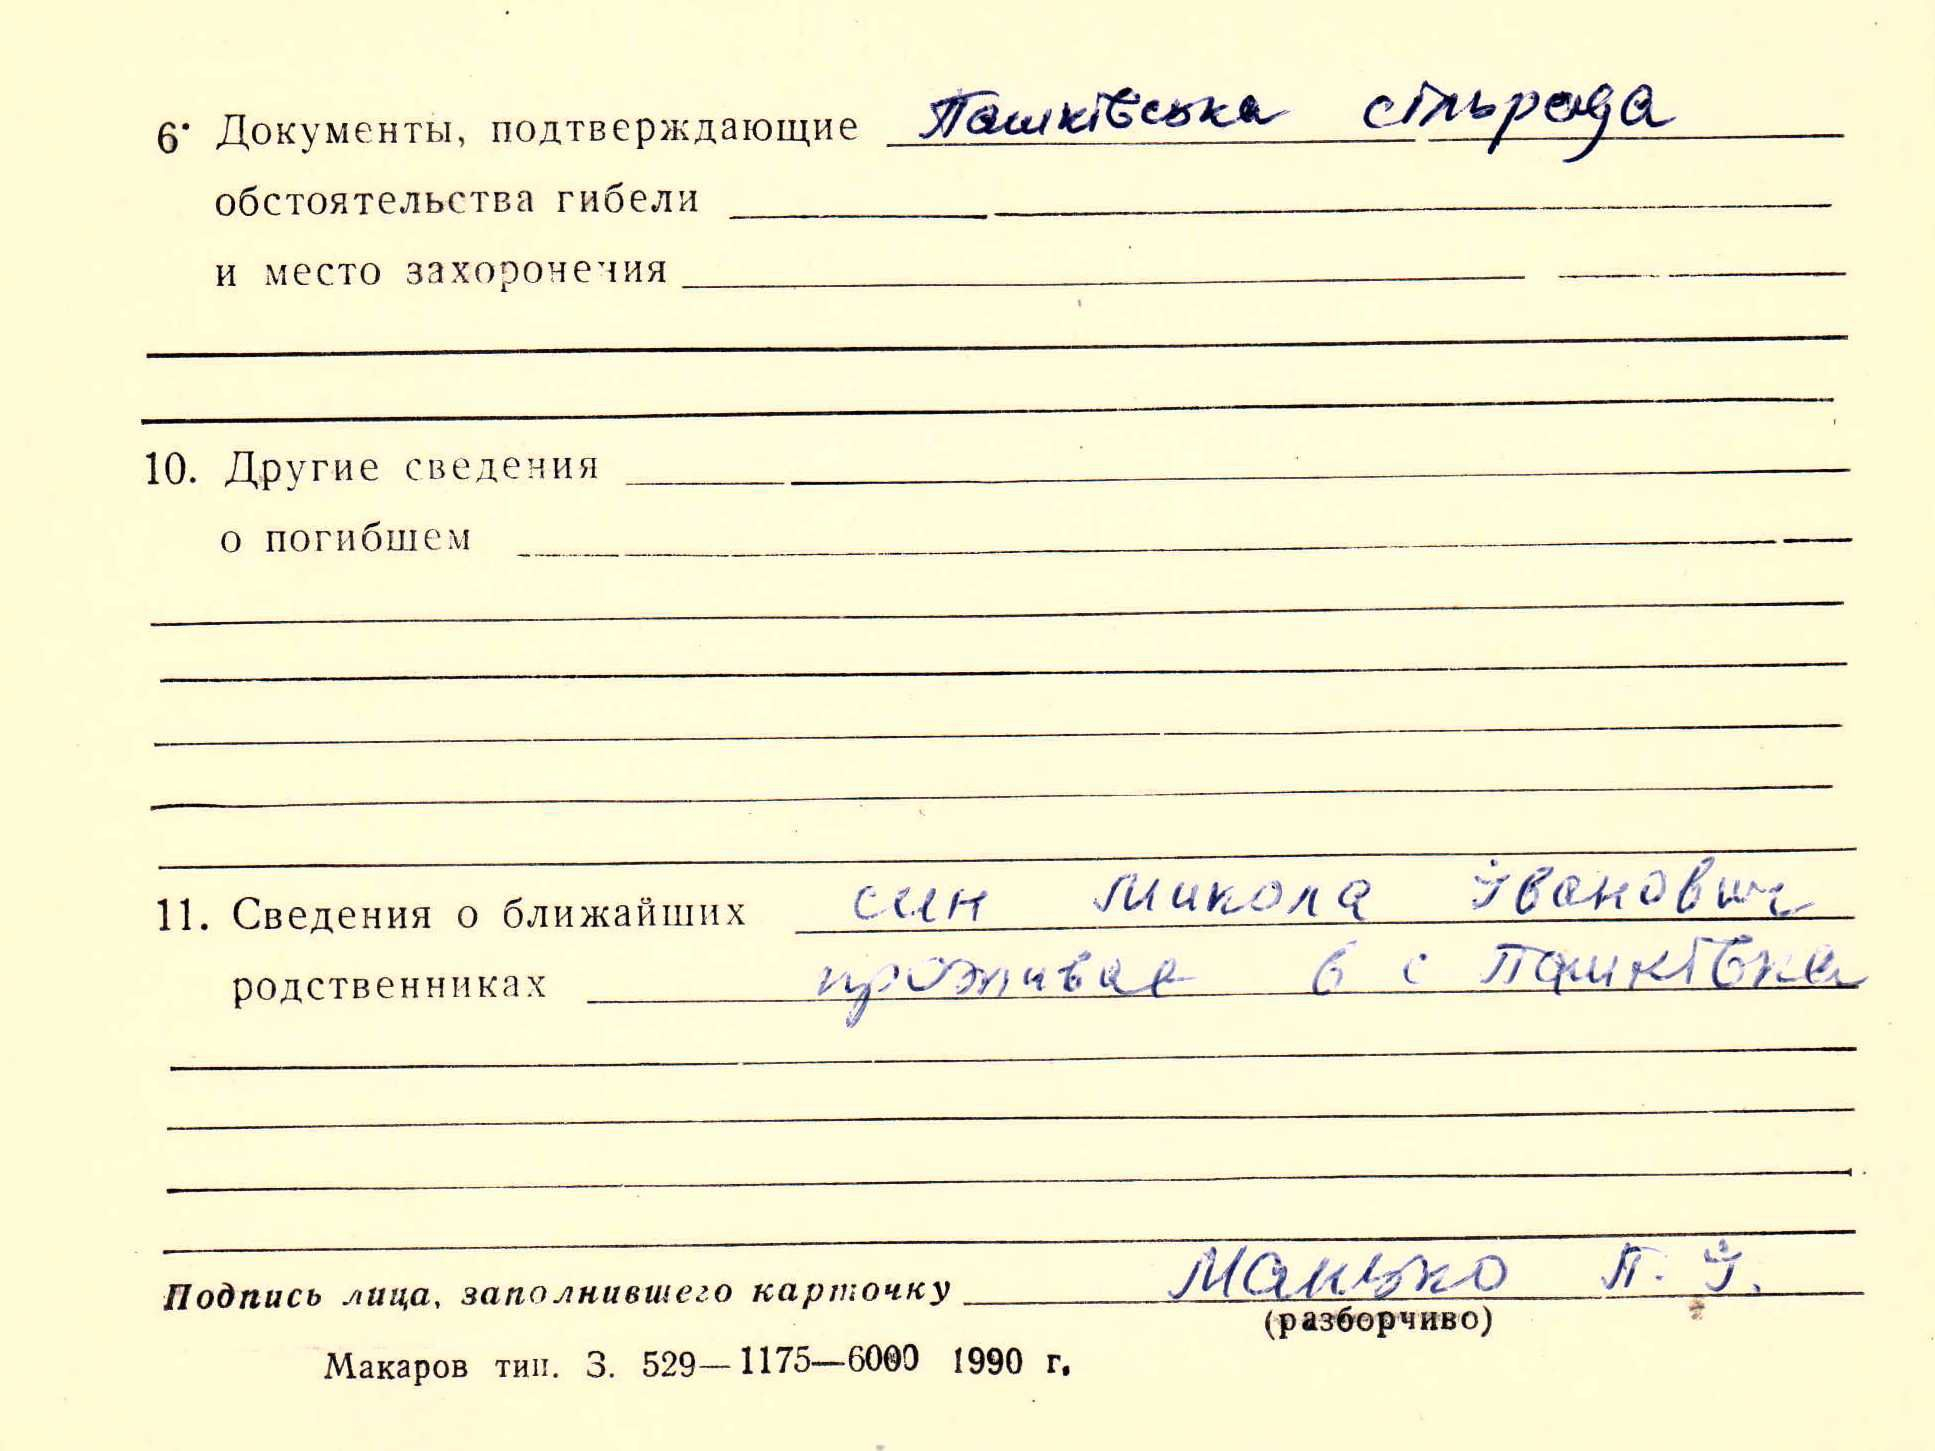 6. Документы, подтверждающие Пашківська сільрада
обстоятельства гибели
и место захоронения
10. Другие сведения
о погибшем
11. Сведения о ближайших син Микола Іванович
родственниках проживає в с Пашківка
Подпись лица, заполнившего карточку Манько П. І.
(разборчиво)
Макаров тип. З. 529—1175—6000 1990 г.